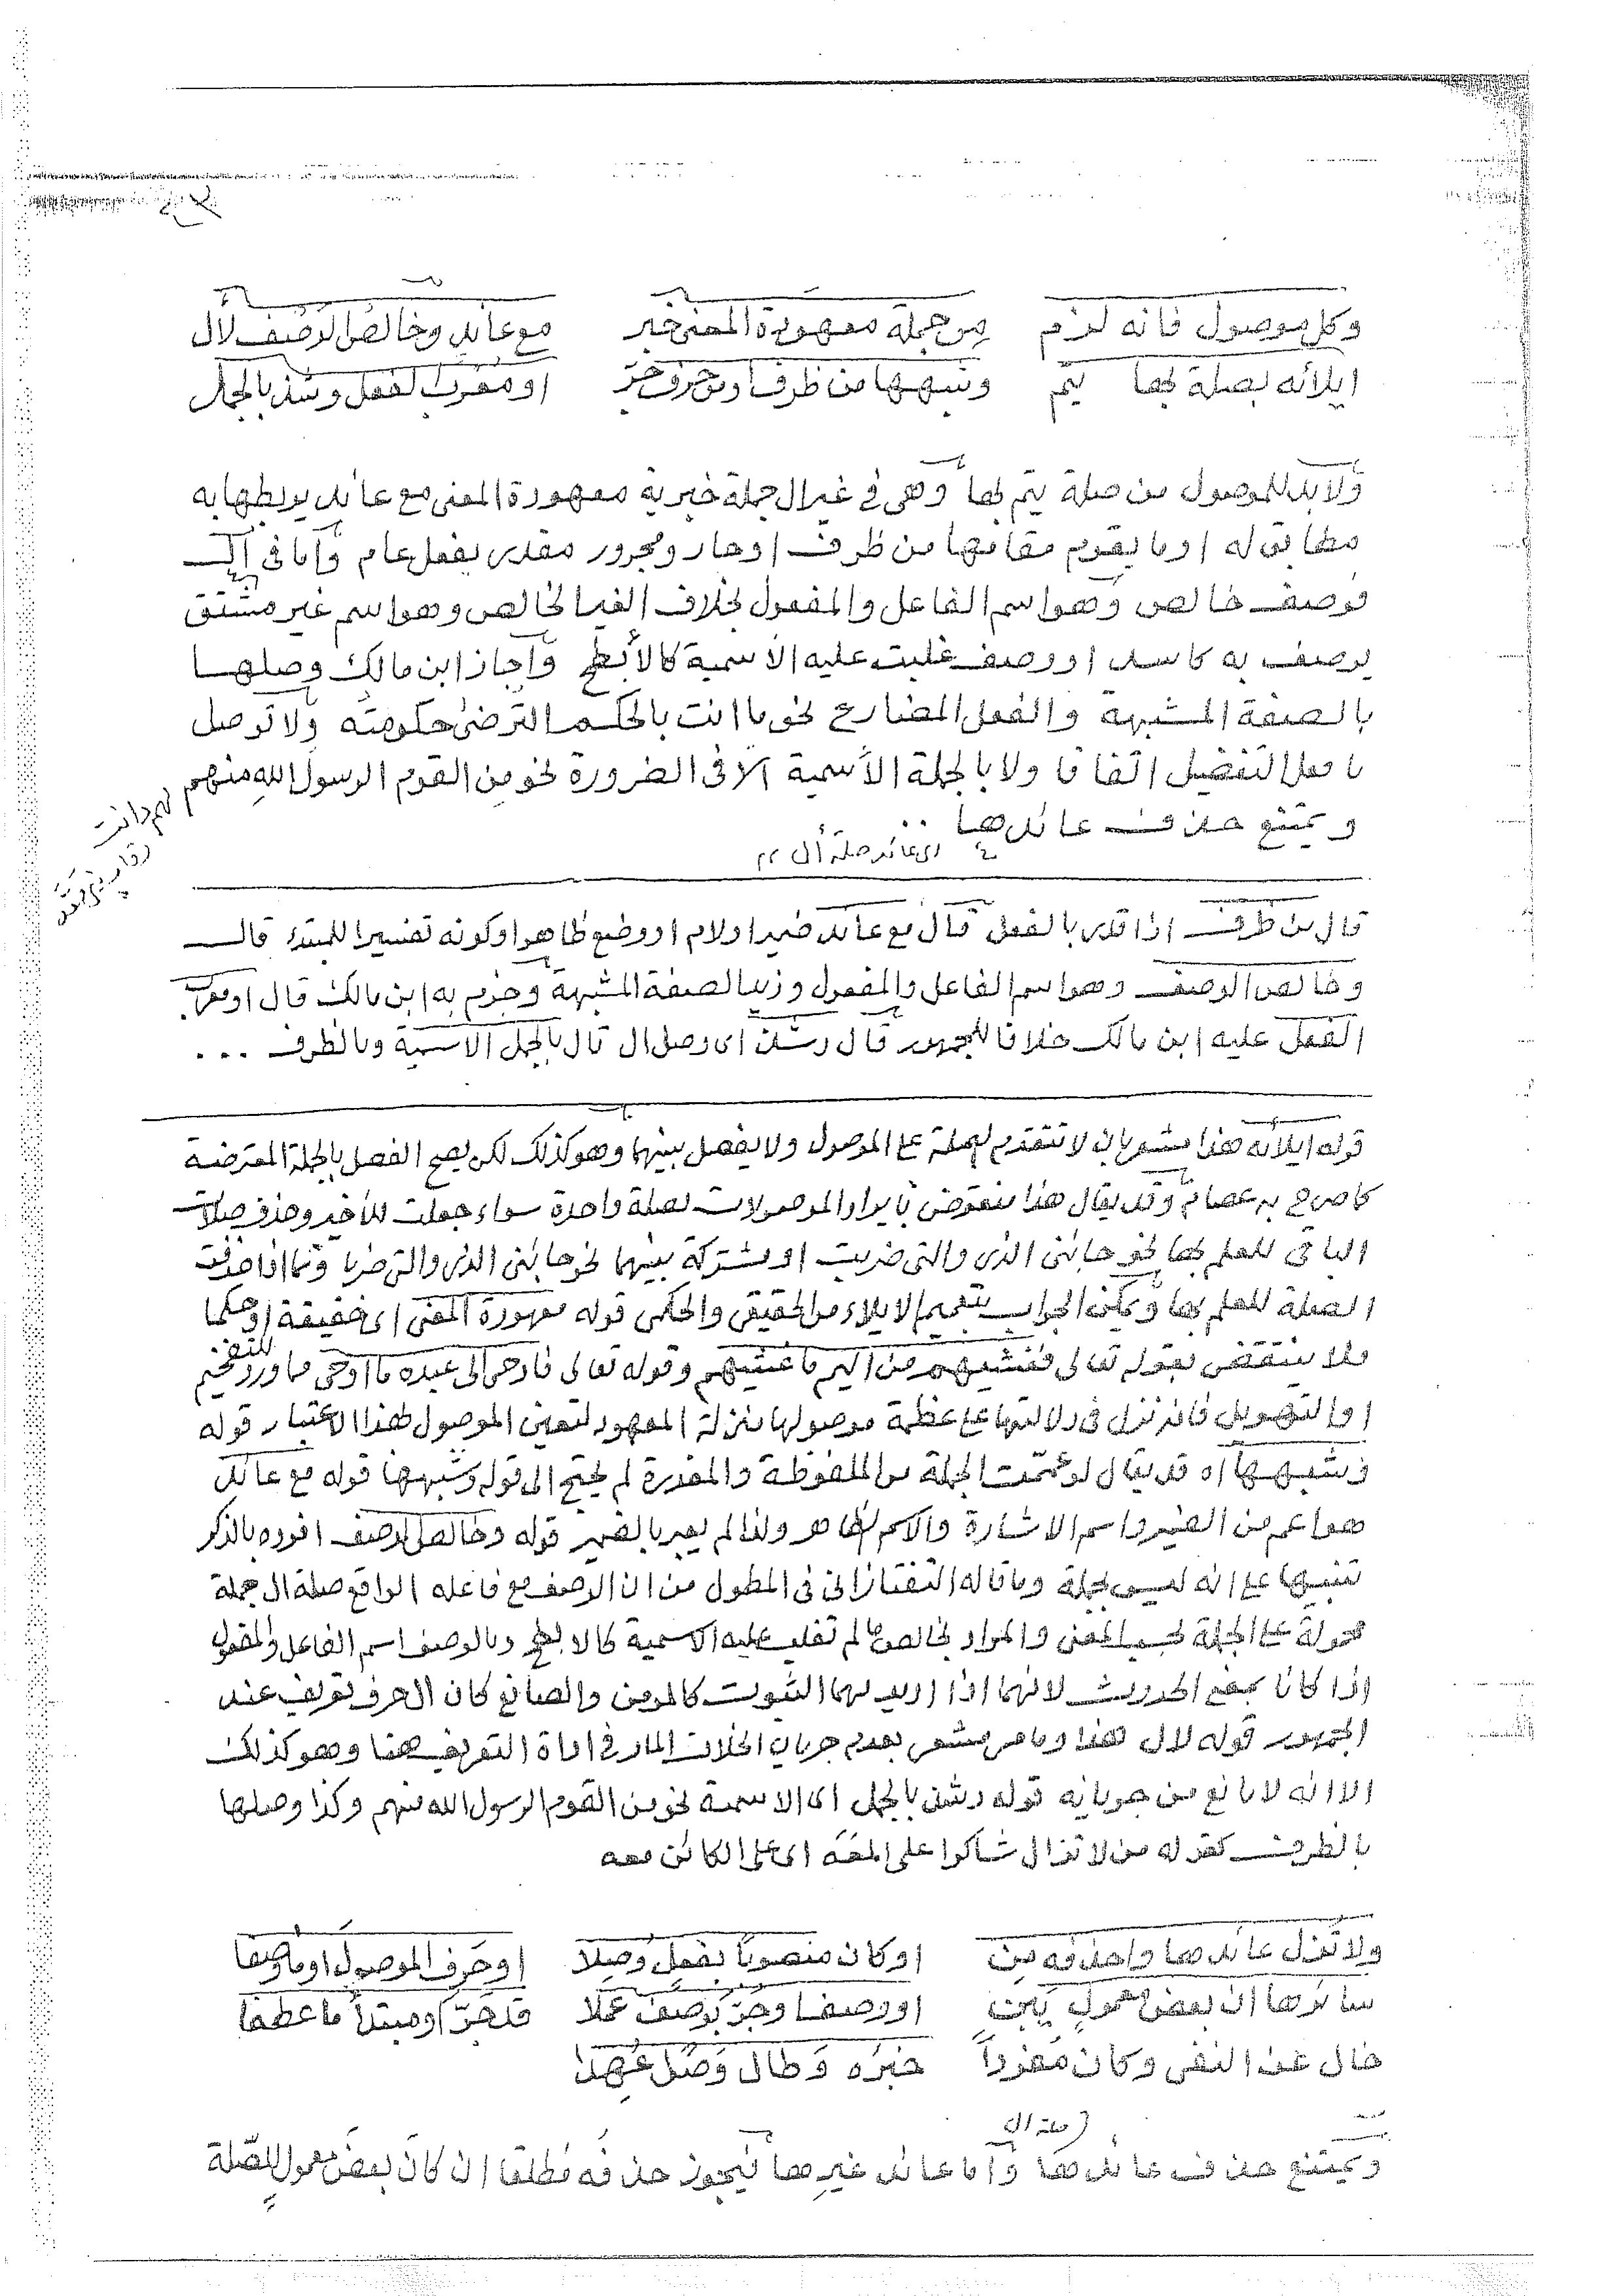 وكل موصول فانه لزم من جملة معهودة المعنى خبر مع عائد وخالص الوصف لال
ايلائه بصلة بها يتم وشبهها من ظرف او من حرف جر او معرب لفعل وشذ بالجمل
ولابد للموصول من صلة يتم بها وهى فى غير ال جملة خبرية معهودة المعنى مع عائد يربطها به
مطابق له او ما يقوم مقامها من ظرف او جار ومجرور مقدر بفعل عام واما فى ال
فوصف خالص وهو اسم الفاعل والمفعول بخلاف الغير الخالص وهو اسم غير مشتق
يوصف به كاسد او وصف غلبت عليه الاسمية كالأبطح واجاز ابن مالك وصلها
بالصفة المشبهة والفعل المضارع نحو ما انت بالحكم الترضى حكومته ولا توصل
بافعل التفضيل اتفاقا ولا بالجملة الأسمية الا فى الضرورة نحو من القوم الرسول الله منهم
ويمتنع حذف عائدها
اى عائد صلة أل
قال من ظرف اذا قدر بالفعل قال مع عائد ضميرا ولام او وضع ظاهر او كونه تفسيرا للمبتدء قال
وخالص الوصف وهو اسم الفاعل والمفعول وزيد الصفة المشبهة وجزم به ابن مالك قال او معرب
الفعل عليه ابن مالك خلافا للجمهور قال وشذ اى وصل ال قال بالجمل الاسمية وبالظرف ...
قوله ايلائه هذا مشعر بان لا تتقدم الصلة على الموصول ولا يفصل بينهما وهو كذلك لكن يصح الفصل بالجملة المعترضة
كما صرح به عصام وقد يقال هذا منقوض بايراد الموصولات بصلة واحدة سواء جعلت للأخير وحذف صلات
الباقى للعلم بها نحو جائنى الذى والتى ضربت او مشتركة بينهما نحو جائنى الذى والتى ضربا وبما اذا حذفت
الصلة للعلم بها ويمكن الجواب بتعميم الايلاء من الحقيقى والحكمى قوله معهودة المعنى اى حقيقة او حكما
فلا ينتقض بقوله تعالى فغشيهم من اليم ما غشيهم وقوله تعالى فاوحى الى عبده ما اوحى مما ورد للتفخيم
او التهويل فانه نزل فى دلالتها على عظمة موصولها منزلة المعهود لتعين الموصول بهذا الاعتبار قوله
وشبهها اه قد يقال لو عممت الجملة من الملفوظة والمقدرة لم يحتج الى قوله وشبهها قوله مع عائد
هو اعم من الضمير واسم الاشارة والاسم الظاهر ولذا لم يعبر بالضمير قوله وخالص الوصف افرده بالذكر
تنبيها على انه ليس بجملة وما قاله التفتازانى فى المطول من ان الوصف مع فاعله الواقع صلة ال جملة
محمولة على الجملة بحسب المعنى والمراد بخالصها ما لم تغلب عليه الاسمية كالابطح وبالوصف اسم الفاعل والمفعول
اذا كانا بمعنى الحدوث لانهما اذا اريد بهما الثبوت كالمؤمن والصانع كان ال حرف تعريف عند
الجمهور قوله لال هذا وما مر مشعر بعدم جريان الخلاف المار فى اداة التعريف هنا وهو كذلك
الا انه لا مانع من جريانه قوله وشذ بالجمل اى الاسمية نحو من القوم الرسول الله منهم وكذا وصلها
بالظرف كقوله من لا تزال شاكرا على المعه اى على الكائن معه
ولا تزل عائدها واحذفه من او كان منصوبا بفعل وصلا او حرف الموصول او ما وصفا
سائرها ان بعض معمول يبن او وصفا وجر بوصف عملا قد جر او مبتدأ ما عطفا
خال عن النفى وكان مفردا خبره وطال وصل عهدا
صلة ال
ويمتنع حذف عائدها واما عائد غيرها فيجوز حذفه مطلقا ان كان بعض معمول للصلة